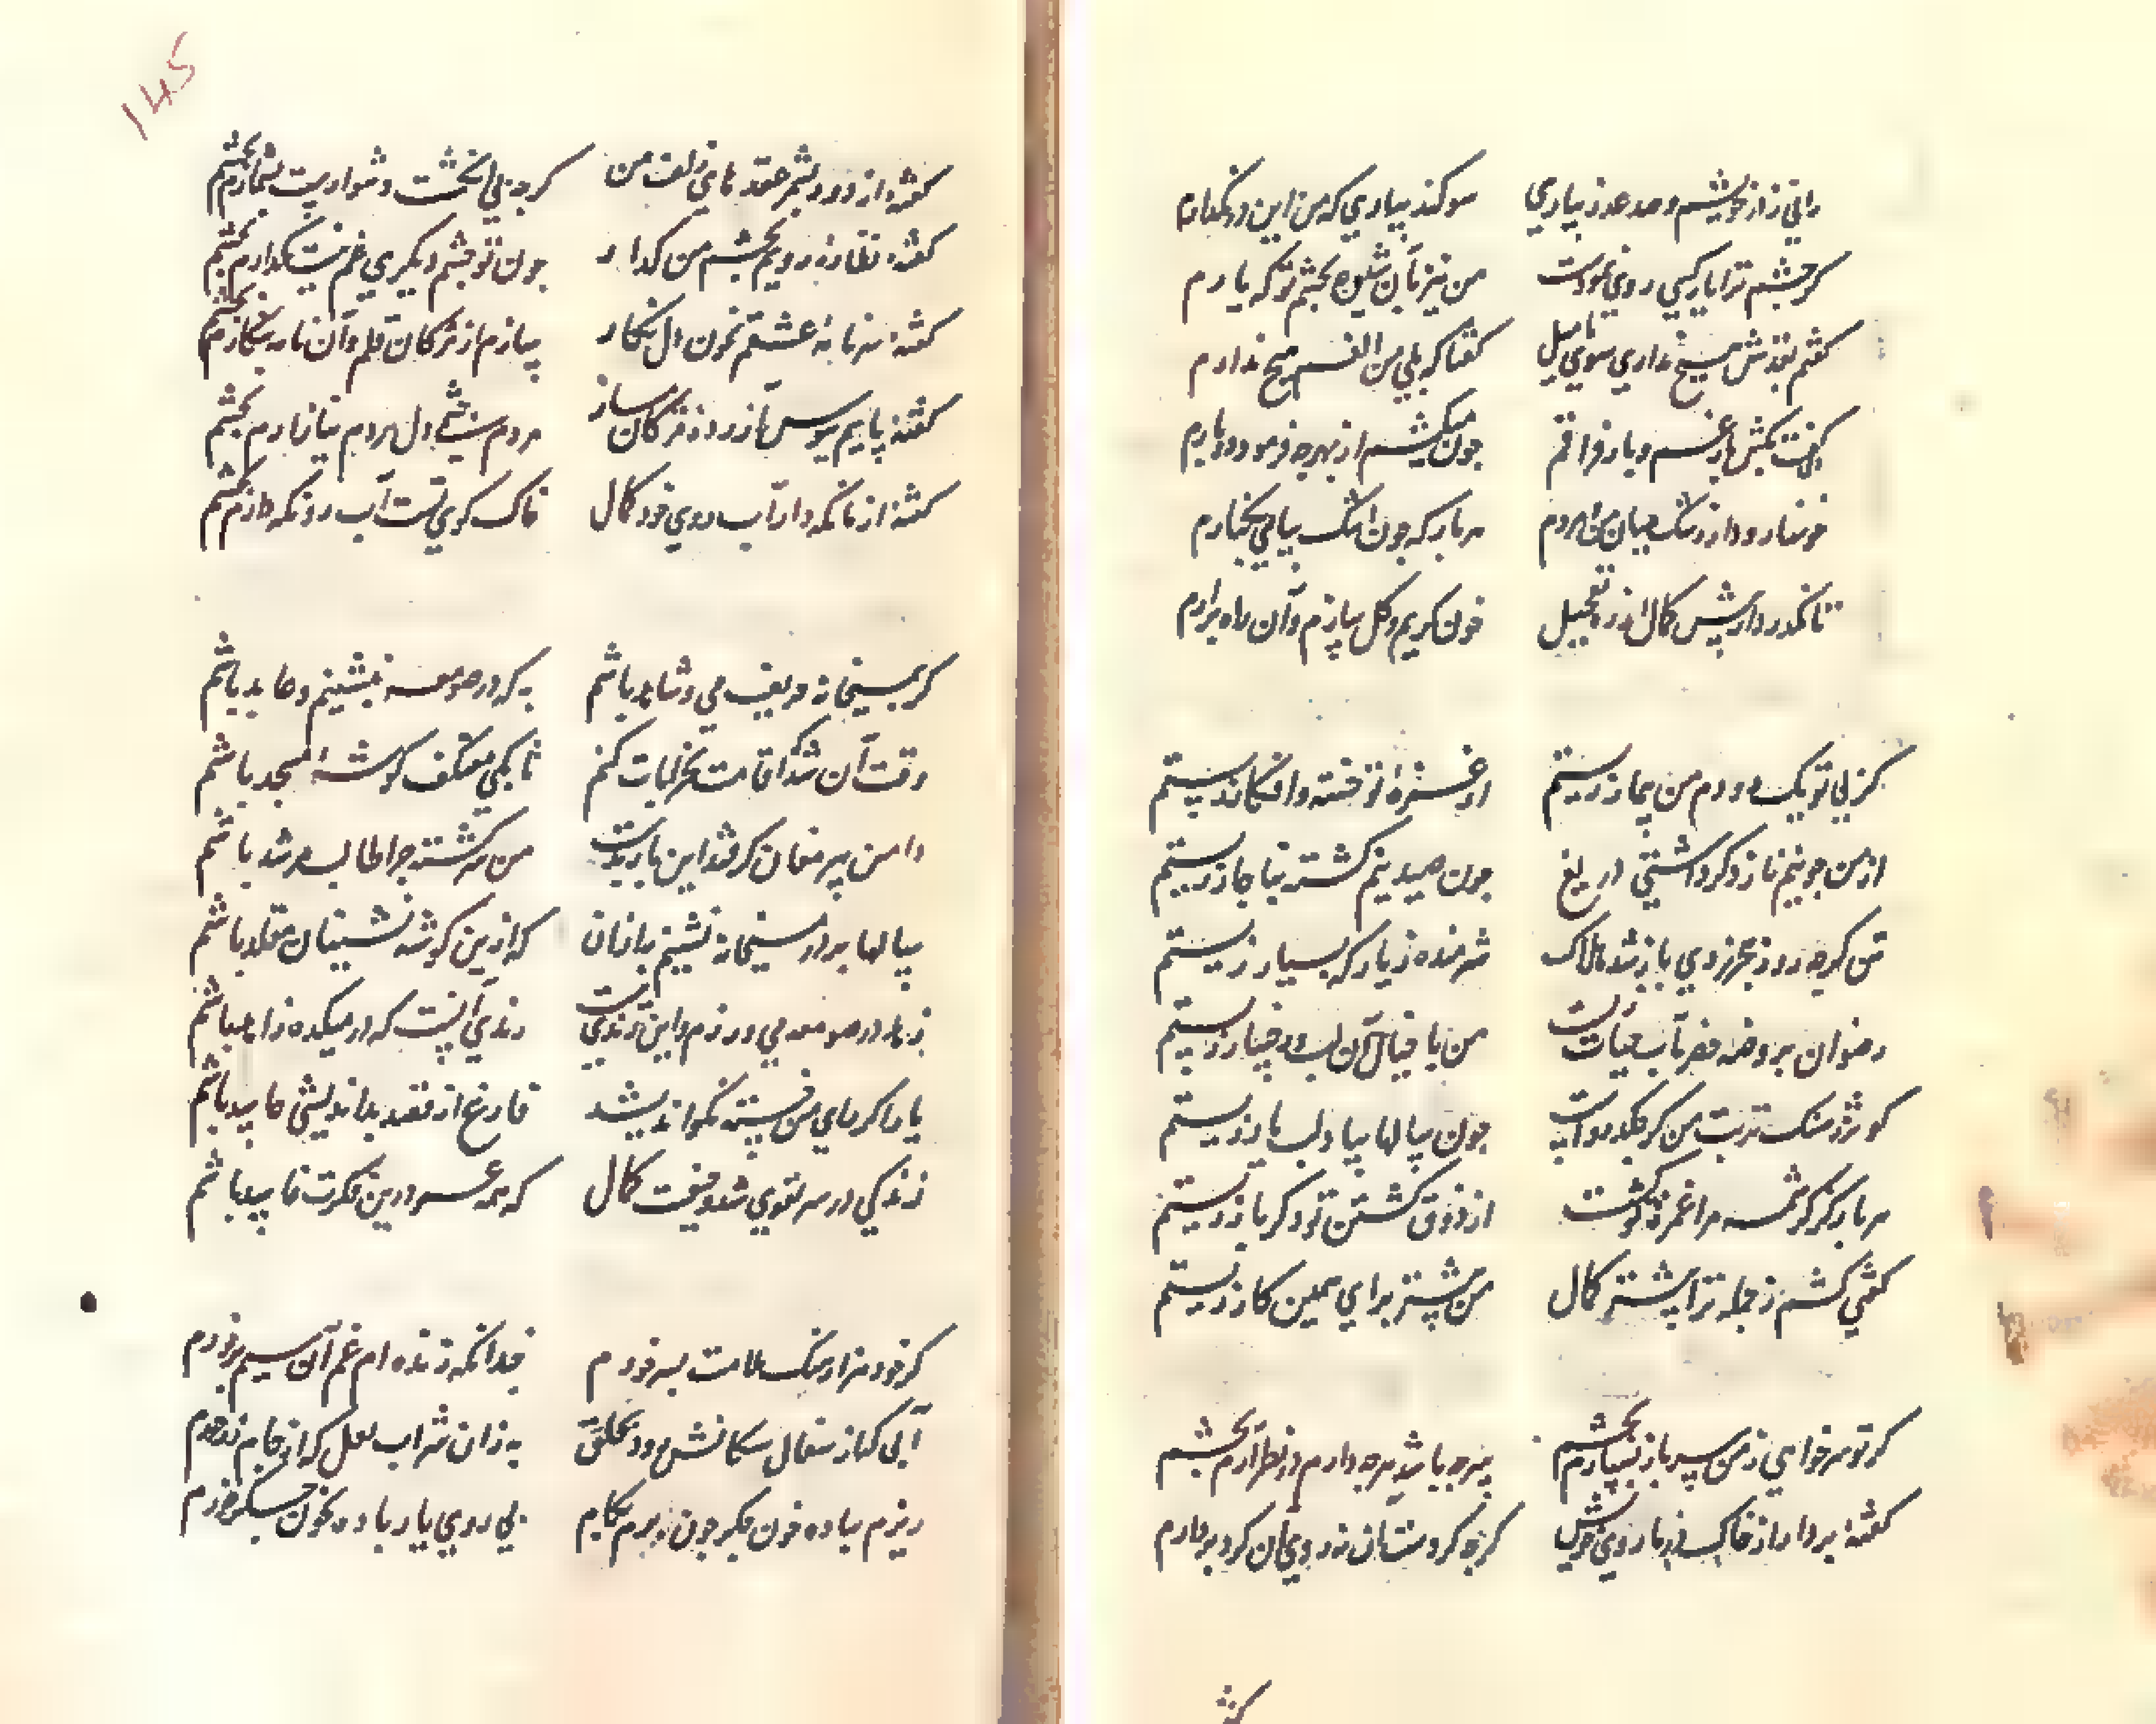 رانی ز در خویشم و صد عذر بیاری سوکند بیاری که من این در نکذارم
کر چشم ترا با رکسی روی نمودست من نیز بآن شیوه بچشم تو که یارم
کفتم بقدش میچ نداری سوی ما میل کفتا که بلی من الفم هیچ ندارم
کفت بکش بار غم و بار فراقم جون میکشم از هرچه فرمود دو بارم
خونبار بود از رشک میان من و مردم هر بار که جون اشک بیایی بکنارم
تا نکذرد از پیش کمال از ره تعجیل خون کریم و کل سازم و آن راه برآرم
کز بی تو یک دو دم من بیمار زیستم از غمزه تو خسته و افکار زیستم
از من جو نیم ناز دکر داشتی دریغ جون صید نیم کشته بناجار زیستم
من کرچه روز هجر ز وی باز شد هلاک شرمنده ز یار که بسیار زیستم
رضوان بروضه خضر بآب حیات زیست من با خیال آن لب و رخسار زیستم
کوثر ز سنک تربت من کر جکد رواست جون سالها بیاد لب یار زیستم
هر بار کز کرشمه مرا غمزه تو کشت از ذوق کشتن تو دکر بار زیستم
کفتی کشم ز جمله ترا پیشتر کمال من بیشتر برای همین کار زیستم
کر تو سر خواهی ز من سر باز نسپارم بچشم هرچه باشد هرچه دارم در نظر آرم بچشم
کفتهٔ بردار از خاک درم روی خویش کرچه کردستان ز روی آن کرد بردارم
کفتهٔ
۱۴۵
کفتهٔ از دور بشمر عقدهای زلف من کرچه بی انکشت دشوارست بشمارم بچشم
کفتهٔ نظاره رویم بچشم من کدار جون تو چشم دیکری غم نیست بکذارم بچشم
کفتهٔ سرنامهٔ عشقم بخون دل نکار سازم از مژکان قلم و آن نامه بنکارم بچشم
کفتهٔ پایم ببوس آزرده مژکان مساز مردم بی دل مردم نیازارم بچشم
کفتهٔ از ما نکه دار آب روی خود کمال خاک کوی تست آب رو نکه دارم بچشم
کر بمیخانه حریف می و شاهد باشم به که در صومعه بنشینم و عابد باشم
وقت آن شد که اقامت بخرابات کنم تا بکی معتکف کوشهٔ مسجد باشم
دامن پیر مغان کر فتد این بار بدست من سرکشته چرا طالب مرشد باشم
سالها بر در میخانه نشینم به از آن که ازین کوشه نشینان مقلد باشم
زهد در صومعه می ورزم و این رندی نیست رندی آنست که در میکده زاهد باشم
یار اکر های من خسته نکو اندیشد فارغ از قصد بداندیشی حاسد باشم
زندکی در سر تقوی شد و حیفست کمال که همه عمر درین فکرت فاسد باشم
کر خود هزار سنک ملامت بسر خورم چندانکه زنده ام غم آن سیمبر خورم
آبی کز از سفال سکانش بود بحلق به زان شراب لعل که از جام زر خورم
ریزم بباده خون جکر جون برم بکام بی روی یار باده بخون جکر خورم